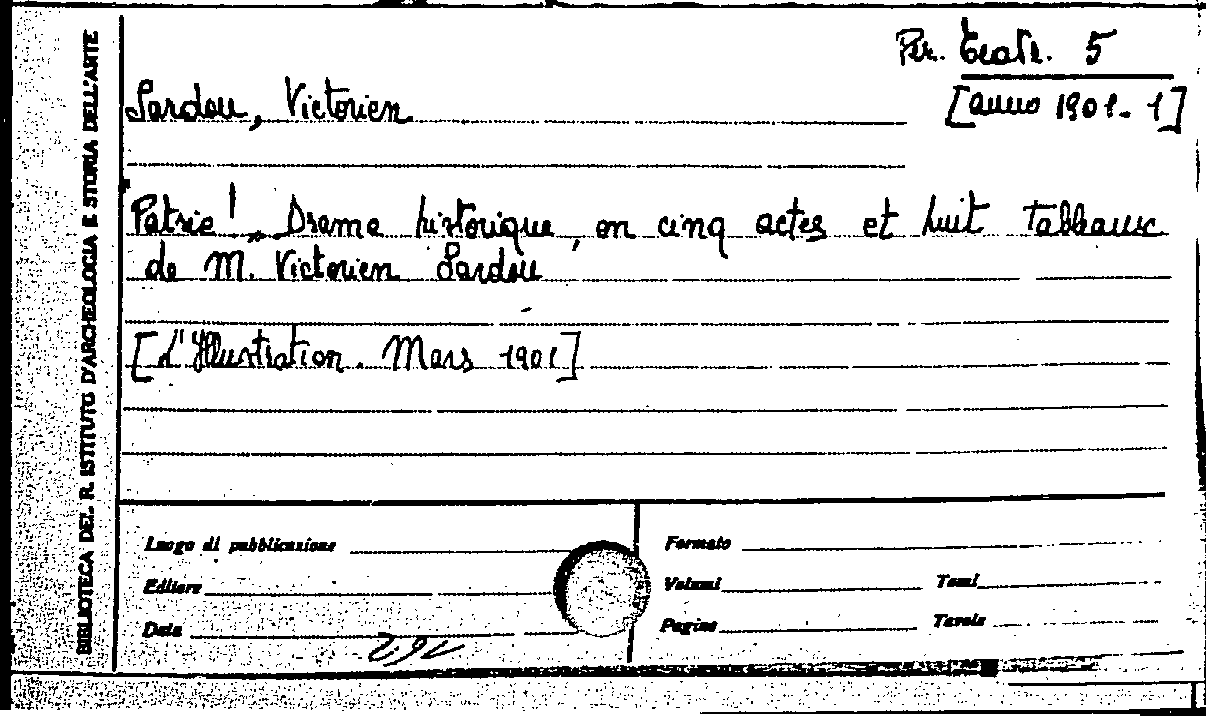 Per. Teatr. 5
[anno 1901. 1]
Sardou, Victorien
Patrie! Drame historique, en cinq actes et huit tableaux
de M. Victorien Sardou
[L'Illustration. Mars 1901]
BIBLIOTECA DEL R. ISTITUTO D'ARCHEOLOGIA E STORIA DELL'ARTE
Luogo di pubblicazione
Editore
Data
Formato
Volumi Tomi
Pagine Tavole